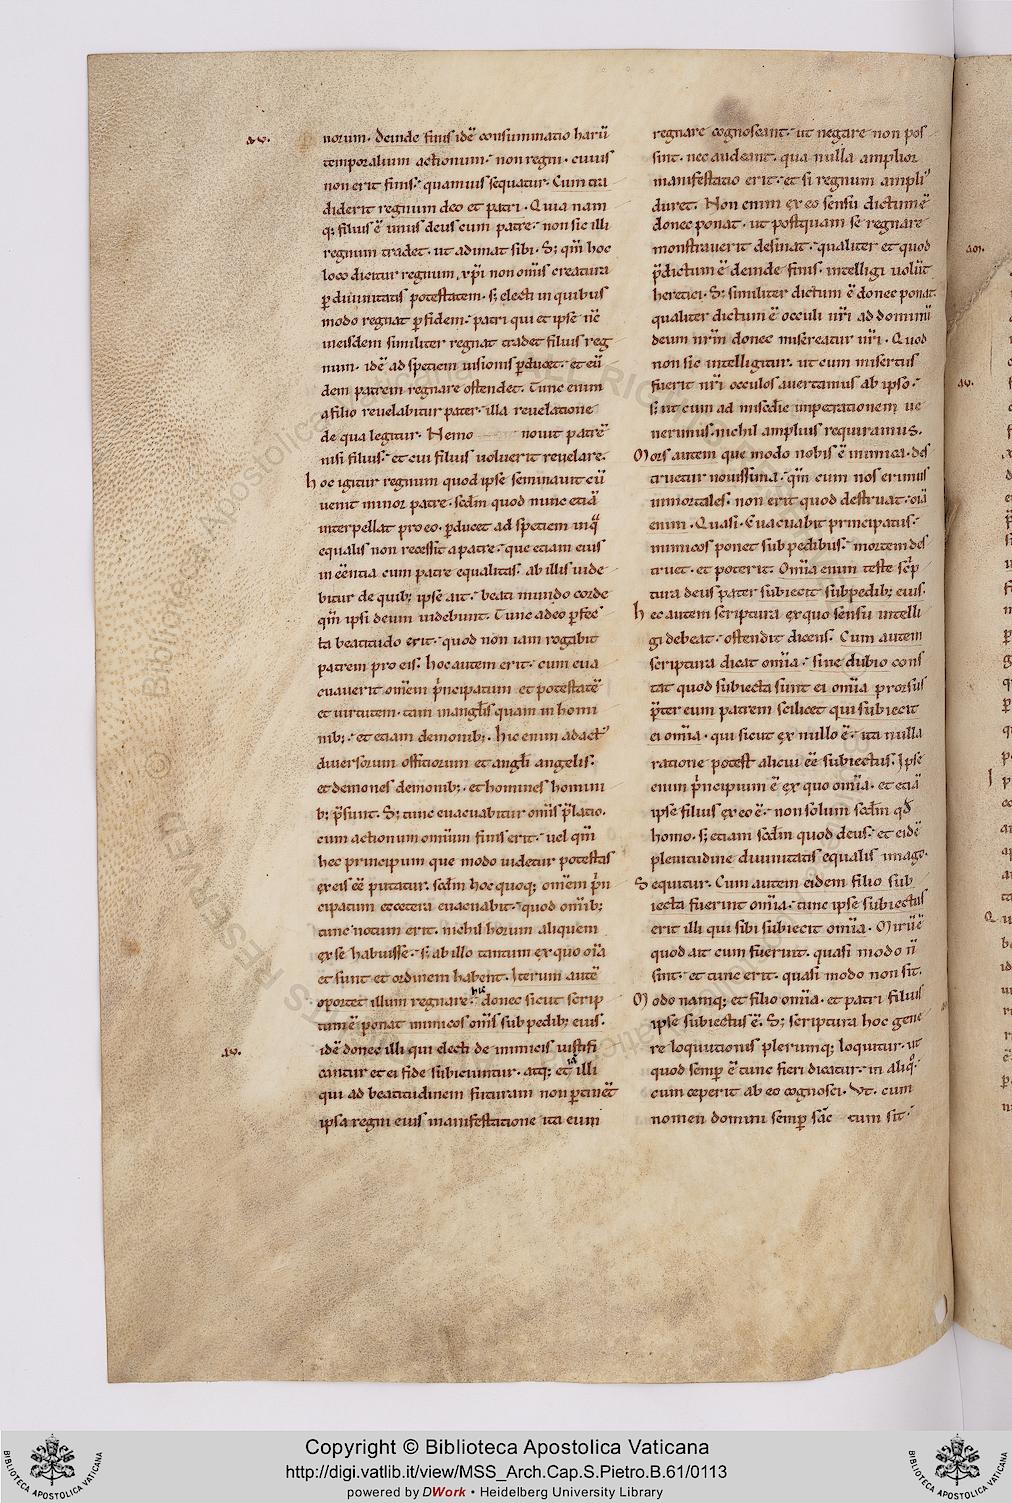 .av.
norum. deinde finis idē consummatio harū
temporalium actionum. non regni. cuius
non erit finis. quamuis sequatur. Cum tra
diderit regnum deo et patri. Quia nam
q; filius ē unus deus cum patre. non sic illi
regnum tradet. ut adimat sibi. S; qm̄ hoc
loco dicitur regnum xp̄i non om̄is creatura
p̱ diuinitatis potestatem. s; electi in quibus
modo regnat p̱ fidem. patri qui et ipse
in eisdem similiter regnat tradet filius reg
num. idē ad spetiem uisionis p̱ducet. et eū
dem patrem regnare ostendet. Tunc enim
a filio reuelabitur pater. illa reuelatione
de qua legitur. Nemo nouit patrē
nisi filius. et cui filius uoluerit reuelare.
hoc igitur regnum quod ipse seminauit cū
uenit minor patre. scdm̄ quod nunc etiā
interpellat pro eo. p̱ducet ad spetiem in q̄
equalis non recessit a patre. que etiam eius
in ēēntia cum patre equalitas. ab illis uide
bitur de quib; ipse ait. beati mundo corde
qm̄ ipsi deum uidebunt. Tunc adeo p̱fec
ta beatitudo erit. quod non iam rogabit
patrem pro eis. hoc autem erit. cum eua
cuauerit om̄em p̄ncipatum et potestatē
et uirtutem. tam in angl̄is quam in homi
nib;. et etiam demonib;. hic enim ad act'
diuersorum offitiorum et angl̄i angelis.
et demones demonib;. et homines homini
b; p̄sunt. S; tunc euacuabitur om̄is p̄latio.
cum actionum omnium finis erit. uel qm̄
hec principum que modo uidetur potestas
ex eis ēē putatur. scdm̄ hoc quoq; om̄em p̄n
cipatum et cetera euacuabit. quod om̄ib;
tunc notum erit. nichil horum aliquem
ex se habuisse. s; ab illo tantum ex quo oīa
et sunt et ordinem habent. Iterum autē
hic
oportet illum regnare. donec sicut scrip
tum ē ponat inimicos om̄s sub pedib; eius.
.av.
idē donec illi qui electi de inimicis iustifi
cantur et ei fide subiciuntur. atq; et illi
qui ad beatitudinem futuram non p̱tinēt
ipsa regni eius manifestatione ita eum
regnare cognoscant. ut negare non pos
sint. nec audeant. qua nulla amplior
manifestatio erit. et si regnum ampli'
duret. Non enim ex eo sensu dictum ē
donec ponat. ut postquam se regnare
monstrauerit desinat. qualiter et quod
p̄dictum ē deinde finis. intelligi uolūt
heretici. S; similiter dictum ē donec ponat.
qualiter dictum ē occuli nr̄i ad dominū
deum nr̄m donec misereatur nr̄i. Quod
non sic intelligitur. ut cum misertus
fuerit nr̄i occulos auertamus ab ipso.
s; ut cum ad misc̄die impetrationem ue
nerimus. nichil amplius requiramus.
Mors autem que modo nobis ē inimica. des
truetur nouissima. qm̄ cum nos erimus
inmortales. non erit quod destruat.
enim. Quasi. Euacuabit principatus.
inimicos ponet sub pedibus. mortem des
truet. et poterit. Om̄ia enim teste scrip̄
tura deus pater subiecit sub pedib; eius.
hec autem scriptura ex quo sensu intelli
gi debeat. ostendit dicens. Cum autem
scriptura dicat om̄ia. sine dubio cons
tat quod subiecta sunt ei om̄ia prorsus
p̄ter eum patrem scilicet qui subiecit
ei om̄ia. qui sicut ex nullo ē. ita nulla
ratione potest alicui ēē subiectus. Ipse
enim p̄ncipium ē ex quo om̄ia. et etiā
ipse filius ex eo ē. non solum scdm̄ qd̄
homo. s; etiam scdm̄ quod deus. et eidē
plenitudine diuinitatis equalis imago.
Sequitur. Cum autem eidem filio sub
iecta fuerint om̄ia. tunc ipse subiectus
erit illi qui sibi subiecit om̄ia. Mirū ē
quod ait cum fuerint. quasi modo n̄
sint. et tunc erit. quasi modo non sit.
Modo namq; et filio om̄ia. et patri filius
ipse subiectus ē. S; scriptura hoc gene
re loquutionis plerumq; loquitur. ut
quod semp̱ ē tunc fieri dicatur. in aliq°.
cum ceperit ab eo cognosci. Vt. cum
nomen domini semp̱ sāc tum sit.
.am.
.av.
Copyright © Biblioteca Apostolica Vaticana
http://digi.vatlib.it/view/MSS_Arch.Cap.S.Pietro.B.61/0113
powered by DWork • Heidelberg University Library
BIBLIOTECA APOSTOLICA VATICANA
BIBLIOTECA APOSTOLICA VATICANA